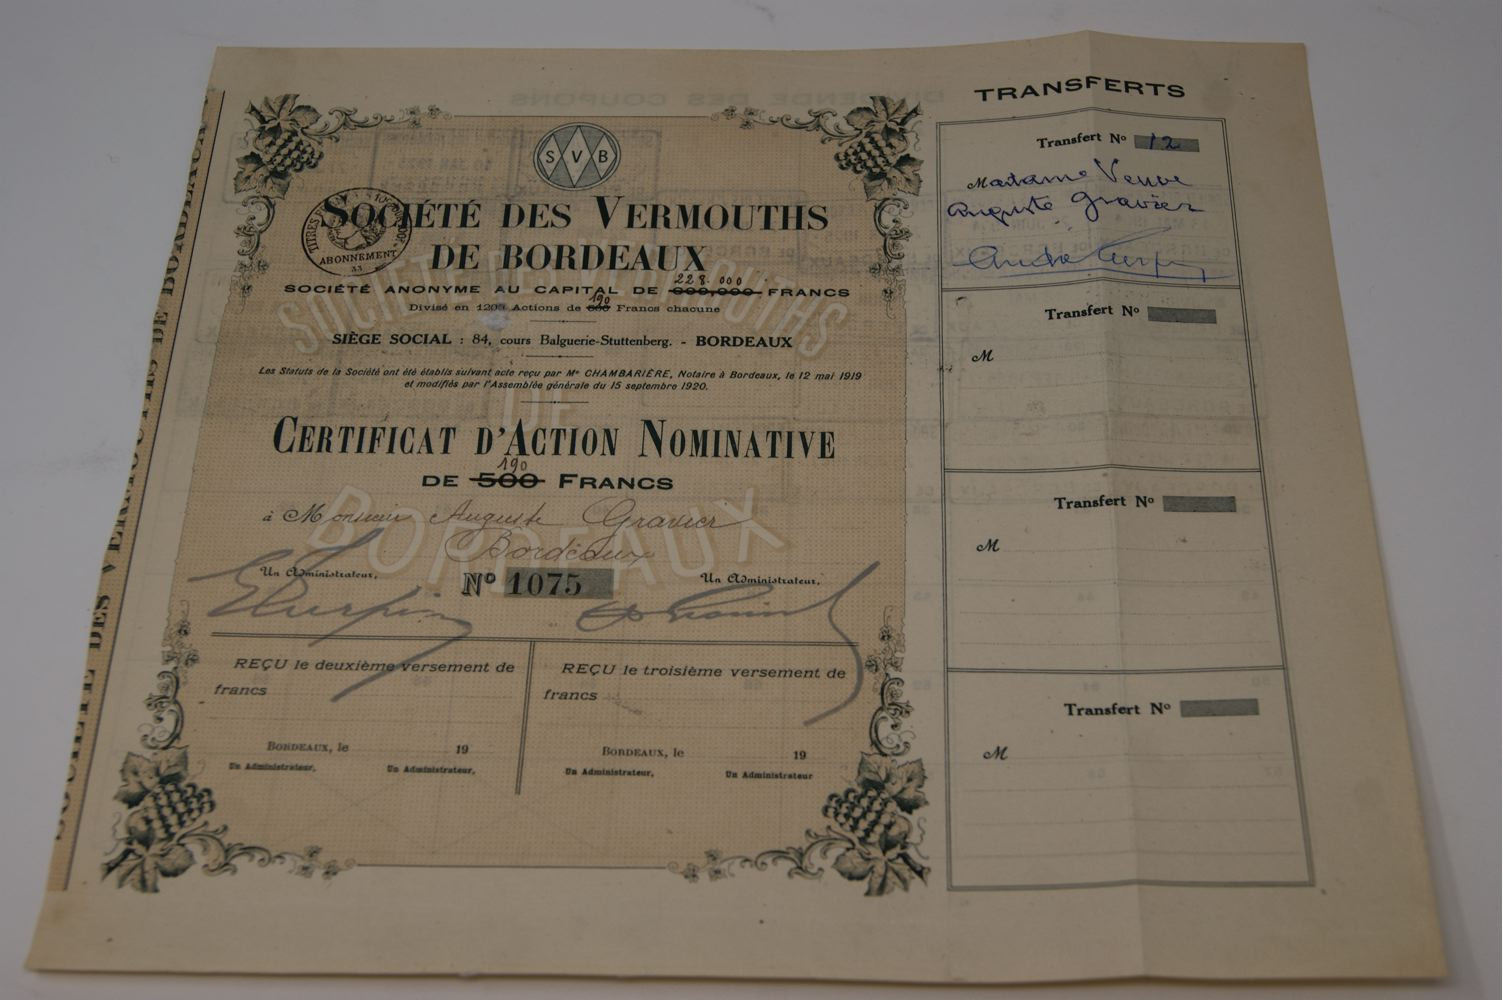 SOCIÉTÉ DES VERMOUTHS DE BORDEAUX
SVB
TITRES
ABONNEMENT
33
SOCIÉTÉ DES VERMOUTHS
DE BORDEAUX
228.000
SOCIÉTÉ ANONYME AU CAPITAL DE 600,000 FRANCS
190
Divisé en 1200 Actions de 500 Francs chacune
SIÈGE SOCIAL : 84, cours Balguerie-Stuttenberg. - BORDEAUX
Les Statuts de la Société ont été établis suivant acte reçu par Me CHAMBARIÈRE, Notaire à Bordeaux, le 12 mai 1919
et modifiés par l'Assemblée générale du 15 septembre 1920.
CERTIFICAT D'ACTION NOMINATIVE
190
DE 500 FRANCS
à Monsieur Auguste Gravier
Bordeaux
Un Administrateur,
No 1075
Un Administrateur,
SOCIÉTÉ DES VERMOUTHS
DE
BORDEAUX
REÇU le deuxième versement de
francs
BORDEAUX, le 19
Un Administrateur,
Un Administrateur,
REÇU le troisième versement de
francs
BORDEAUX, le 19
Un Administrateur,
Un Administrateur
TRANSFERTS
Transfert No 12
Madame Veuve
Auguste Gravier
Transfert No
M
Transfert No
M
Transfert No
M